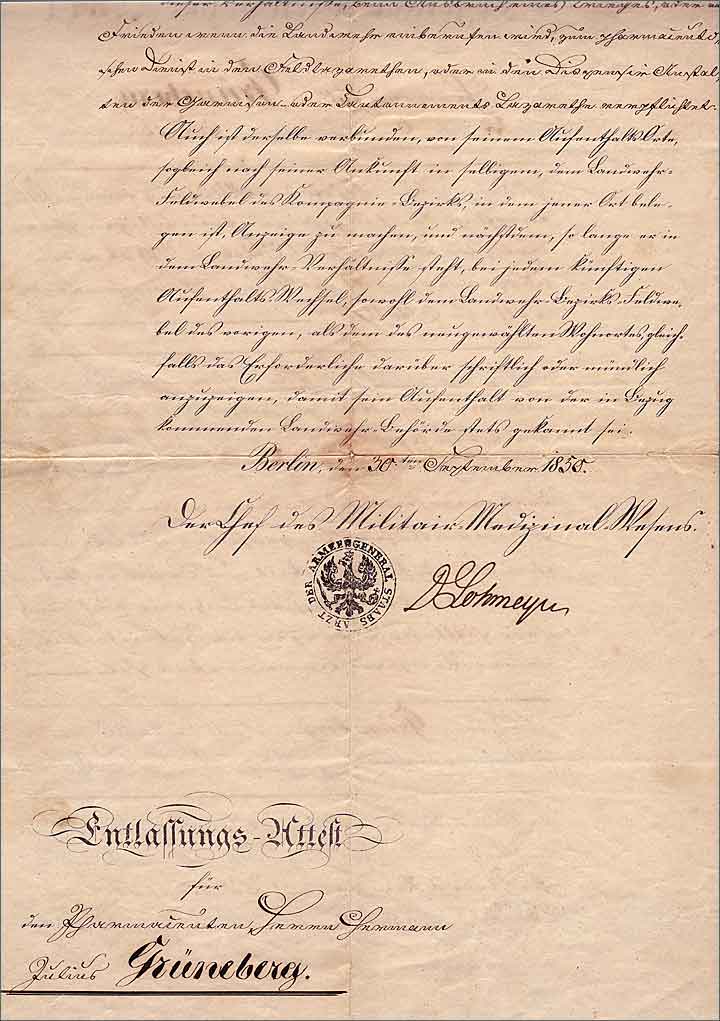 dieser Verhältnisse, beim Ausbruch eines Krieges, oder im
Frieden wenn die Landwehr einberufen wird, zum pharmaceuti-
schen Dienst in den Feldlazarethen, oder in den Dispensir-Anstal-
ten der Garnison- oder Cantonnements-Lazarethe verpflichtet.
Auch ist derselbe verbunden, von seinem Aufenthalts Orte,
sogleich nach seiner Ankunft in selbigem, dem Landwehr-
Feldwebel des Kompagnie-Bezirks, in dem jener Ort bele-
gen ist, Anzeige zu machen, und nächstdem, so lange er in
dem Landwehr-Verhältnisse steht, bei jedem künftigen
Aufenthalts Wechsel, sowohl dem Landwehr-Bezirks-Feldwe-
bel des vorigen, als dem des neugewählten Wohnortes, gleich-
falls das Erforderliche darüber schriftlich oder mündlich
anzuzeigen, damit sein Aufenthalt von der in Bezug
kommenden Landwehr-Behörde stets gekannt sei.
Berlin, den 30ten September 1850.
Der Chef des Militair-Medizinal-Wesens.
GENERAL STAABS ARZT DER ARMEE
Lohmeyer
Entlassungs-Attest
für
den Pharmaceuten, Herrn Hermann
Julius Grüneberg.